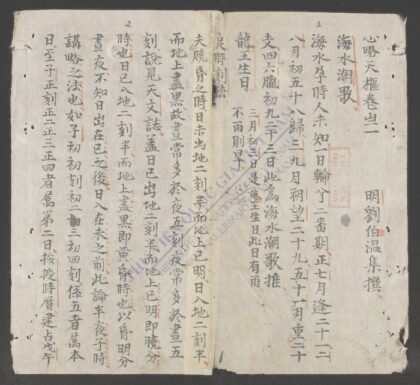 心略天樞卷之一
明劉伯温集撰
海水潮歌
海水準時人未知一日輪分二番期正七月逢二十一二
八月初五十八歸三九月朔望二十九五十一月重二十
文四六臘初九二十三日此為海水潮歌推
龍王生日
三月初三日是龍王生日此日有雨
不雨則旱
夫曉昏之時日未出地二刻半而地上已明日入地二刻半
而地上盡黑故晝常多於夜五刻夜常多於晝五
刻說見天文誌蓋日已出地二刻半而地上已明即曉分
時也日已入地二刻半而地上盡黑即黄昏時也以昏明分
晝夜不知日出在已之後日入在未之前此論半夜子時
講略之法也如子初初刻初二初三初四刻係五者為本
日至子正刻正二正三正四者為第二日按授時曆建古戊午